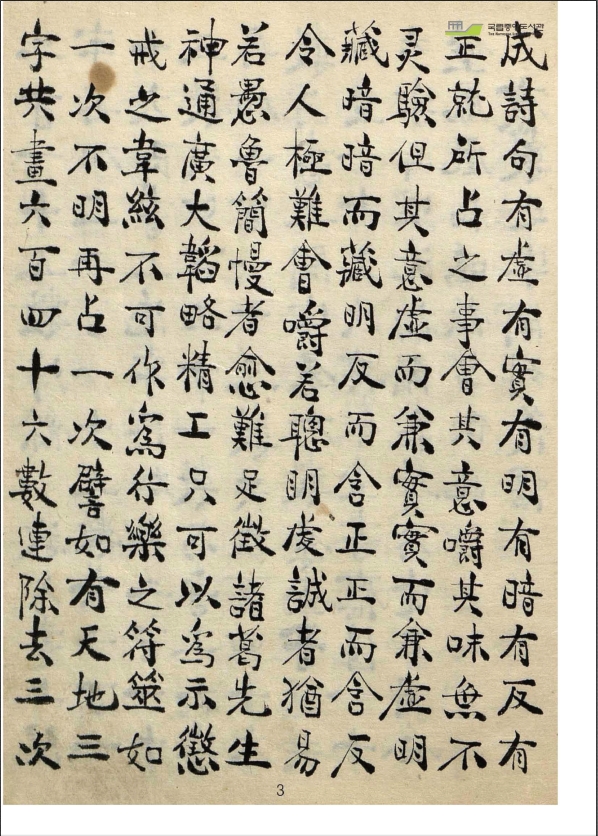 成詩句有虛有實有明有暗有反有
正就所占之事會其意嚼其味無不
灵驗但其意虛而兼實實而兼虛明
藏暗暗而藏明反而含正正而含反
令人極難會嚼若聰明虔誠者猶易
若愚魯簡慢者愈難足徵諸葛先生
神通廣大韜略精工只可以爲示懲
戒之韋絃不可作爲行樂之符筮如
一次不明再占一次譬如有天地三
字共畫六百四十六數連除去三次
3
國立중앙도서관